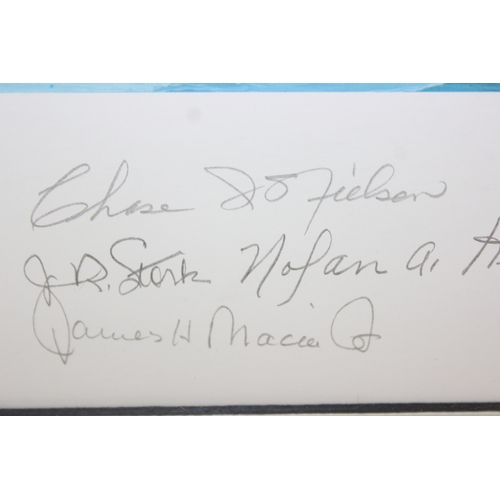 Chase J Nielsen
J. R. Stork Nolan A. H
James H Macia Jr